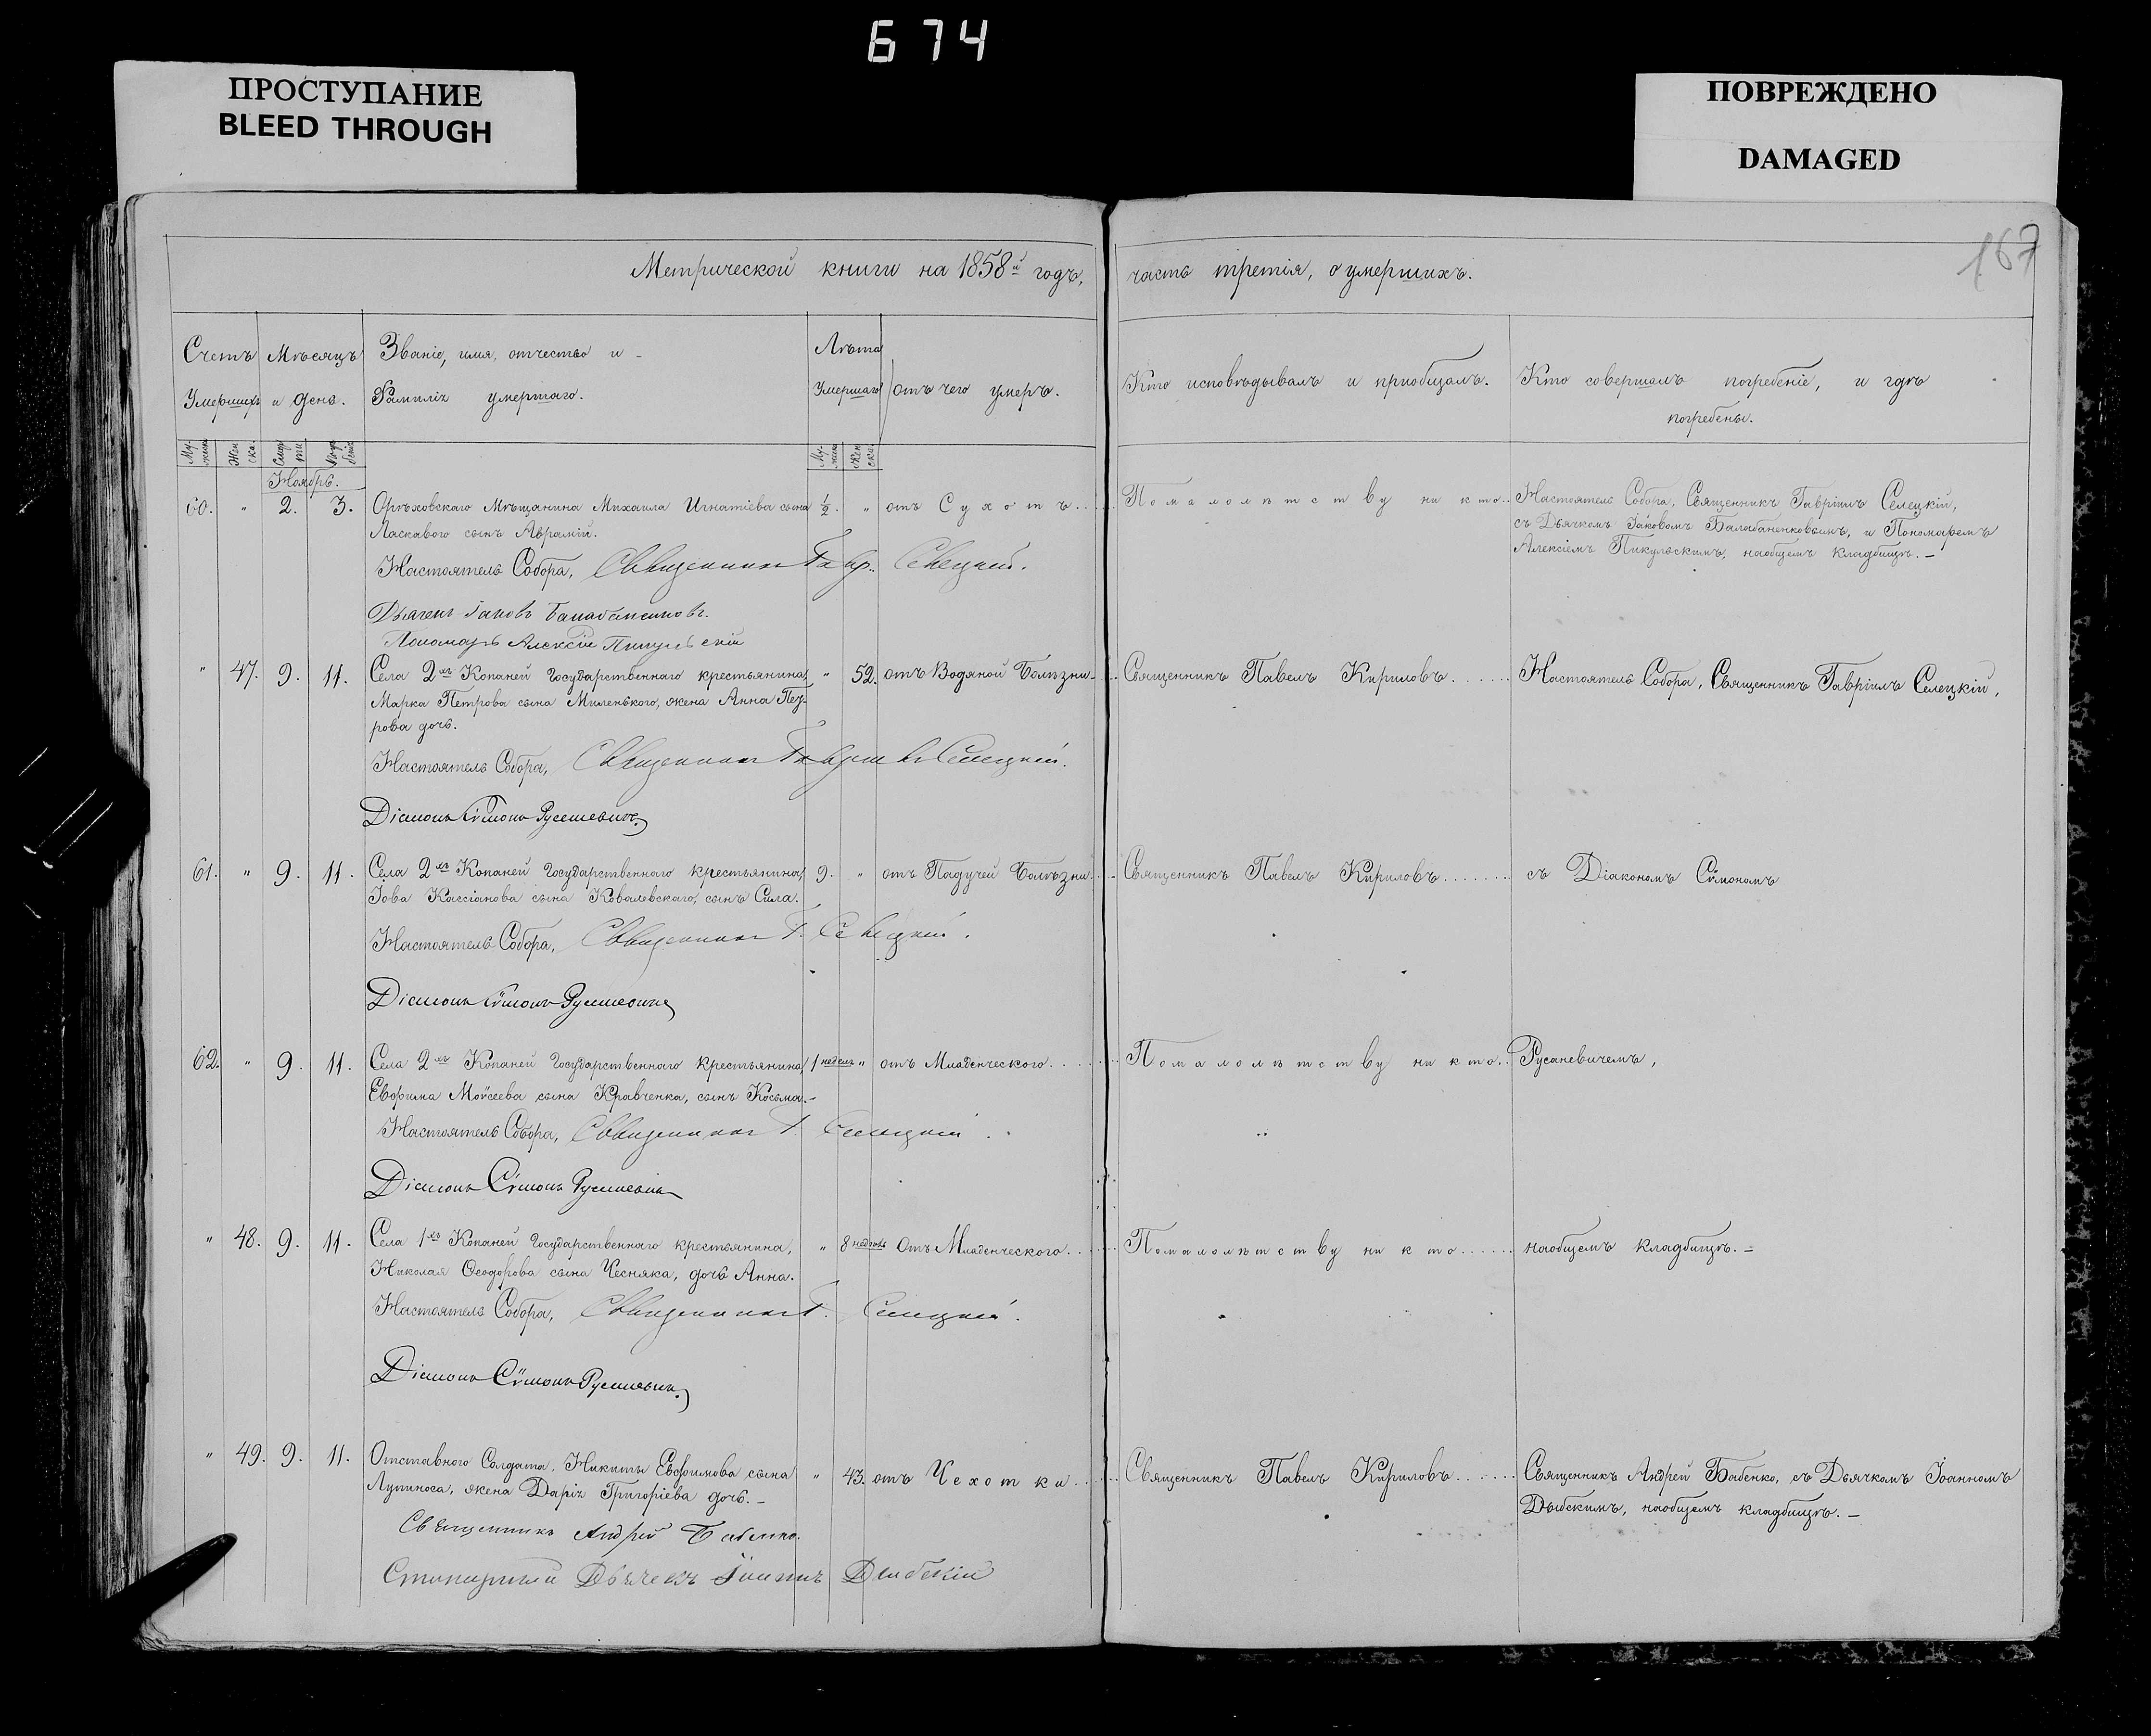 674
ПРОСТУПАНИЕ
BLEED THROUGH
ПОВРЕЖДЕНО
DAMAGED
167
Метрической книги на 1858й годъ, часть третія, о умершихъ.
Счетъ Умершихъ
Мѣсяцъ и день.
Званіе, имя, отчество и
Фамилія умершаго.
Лѣта Умершаго
отъ чего умеръ.
Кто исповѣдывалъ и приобщалъ.
Кто совершалъ погребеніе, и гдѣ
погребены.
Ноябрь.
60. " 2. 3. Орѣховскаго Мѣщанина Михаила Игнатіева сына ½. " отъ Сухотъ.... По малолѣтству никто.. Настоятель Собора, Священникъ Гавріилъ Селецкій,
Ласкавого сынъ Аврамій.
съ Дьячкомъ Іаковомъ Балабаненковымъ, и Пономаремъ
Алексіемъ Пикульскимъ, наобщемъ кладбищѣ. –
Настоятель Собора, Священникъ Гавр. Селецкій.
Дьячекъ Іаковъ Балабаненковъ.
Пономарь Алексій Пикульскій
" 47. 9. 11. Села 2хъ Копаней Государственнаго крестьянина " 52. отъ Водяной Болѣзни. Священникъ Павелъ Кириловъ...... Настоятель Собора, Священникъ Гавріилъ Селецкій,
Марка Петрова сына Миленького, жена Анна Пет-
рова дочь.
Настоятель Собора, Священникъ Гавріилъ Селецкій.
Діаконъ Сѵмонъ Русаневичъ.
61. " 9. 11. Села 2хъ Копаней Государственнаго крестьянина, 9. " отъ Падучей Болѣзни... Священникъ Павелъ Кириловъ....... съ Діакономъ Сѵмономъ
Іова Кассіанова сына Ковалевскаго, сынъ Сила.
Настоятель Собора, Священникъ Г. Селецкій.
Діаконъ Сѵмонъ Русаневичъ
62. " 9. 11. Села 2хъ Копаней Государственнаго крестьянина 1 недель " отъ Младенческого...... По малолѣтству никто.. Русаневичемъ,
Евфима Моѵсеева сына Кравченка, сынъ Косьма. –
Настоятель Собора, Священникъ Г. Селецкій.
Діаконъ Сѵмонъ Русаневичъ
" 48. 9. 11. Села 1хъ Копаней Государственнаго крестьянина, " 8 недѣль Отъ Младенческого..... По малолѣтству никто...... наобщемъ кладбищѣ. –
Николая Ѳеодорова сына Чесняка, дочь Анна.
Настоятель Собора, Священникъ Г. Селецкій.
Діаконъ Сѵмонъ Русаневичъ.
" 49. 9. 11. Отставного Солдата, Никиты Евфимова сына " 43. отъ Чехотки.... Священникъ Павелъ Кириловъ...... Священникъ Андрей Бабенко, съ Дьячкомъ Іоанномъ
Лупиноса, жена Дарія Григоріева дочь. –
Дыбскимъ, наобщемъ кладбищѣ. –
Священникъ Андрей Бабенко.
Дьячекъ Іоаннъ Дыбскій